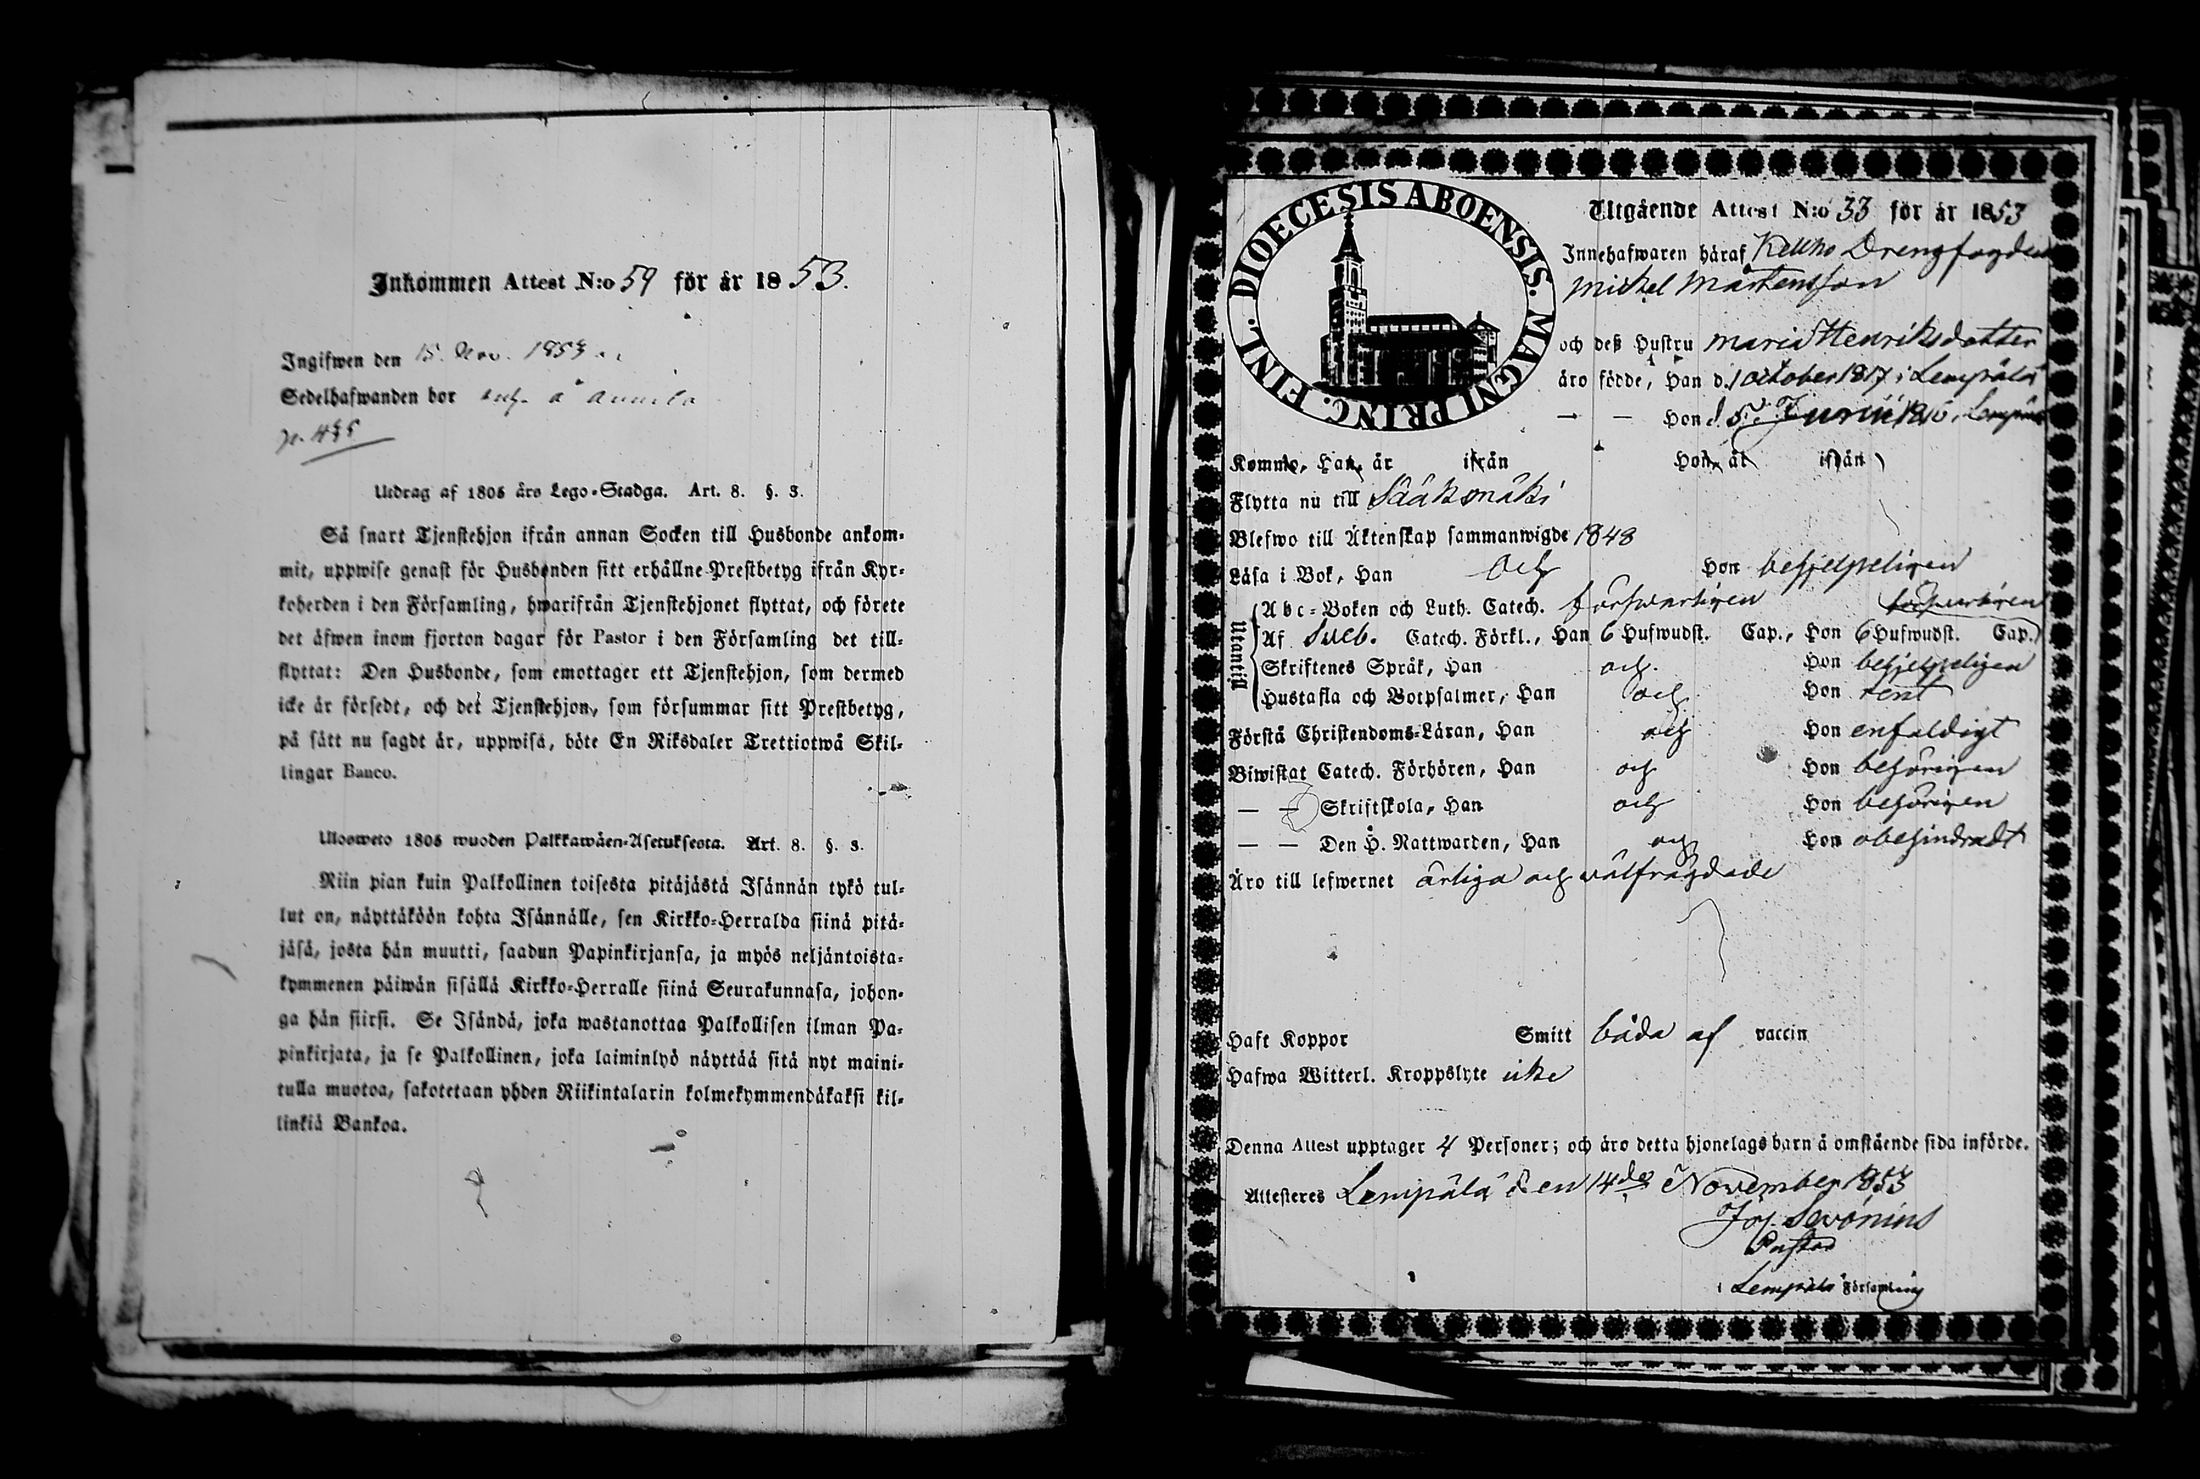 Inkommen Attest N:o 59 för år 1853.
Ingifwen den 15. Nov. 1853
Sedelhafwanden bor å Annila
p. 495
Utdrag af 1805 års Lego-Stadga. Art. 8. §. 3.
Så snart Tjenstehjon ifrån annan Socken till Husbonde ankom-
mit, uppwise genast för Husbonden sitt erhållne Prestbetyg ifrån Kyr-
koherden i den Församling, hwarifrån Tjenstehjonet flyttat, och förete
det äfwen inom fjorton dagar för Pastor i den Församling det till-
flyttat: Den Husbonde, som emottager ett Tjenstehjon, som dermed
icke är försedt, och det Tjenstehjon, som försummar sitt Prestbetyg,
på sätt nu sagdt är, uppwisa, böte En Riksdaler Trettiotwå Skil-
lingar Banco.
Ulosweto 1805 wuoden Palkkawäen-Asetuksesta. Art. 8. §. 3.
Niin pian kuin Palkollinen toisesta pitäjästä Isännän tykö tul-
lut on, näyttäköön kohta Isännälle, sen Kirkko-Herralda siinä pitä-
jäsä, josta hän muutti, saadun Papinkirjansa, ja myös neljäntoista-
kymmenen päiwän sisällä Kirkko-Herralle siinä Seurakunnasa, johon-
ga hän siirsi. Se Isändä, joka wastanottaa Palkollisen ilman Pa-
pinkirjata, ja se Palkollinen, joka laiminlyö näyttää sitä nyt maini-
tulla muotoa, sakotetaan yhden Riikintalarin kolmekymmendäkaksi kil-
linkiä Bankoa.
DIOECESIS ABOENSIS. MAGNI PRINC. FINL.
Utgående Attest N:o 33 för år 1853
Innehafwaren häraf Kelkko Drengfogden
Michel Mårtensson
och deß Hustru Maria Henriksdotter
äro födde, Han d. 1 October 1817 i Lempälä
— — Hon d. 5 Junii 1816 i Lempälä
Komne, Han, år ifrån Hon, år ifrån
Flytta nu till Sääksmäki
Blefwo till Äktenskap sammanwigde 1848
Läsa i Bok, Han och Hon behjelpeligen
Utantill
Abc-Boken och Luth. Catech. försvarligen försvarligen
Af Sveb. Catech. Förkl., Han 6 Hufwudst. Cap., Hon 6 Hufwudst. Cap.
Skriftenes Språk, Han och Hon behjelpeligen
Hustafla och Botpsalmer, Han och Hon rent
Förstå Christendoms-Läran, Han och Hon enfaldigt
Biwistat Catech. Förhören, Han och Hon behörigen
— — Skriftskola, Han och Hon behörigen
— — Den H. Nattwarden, Han och Hon obehindradt
Äro till lefwernet ärliga och välfrägdade
Haft Koppor Smitt båda af vaccin
Hafwa Witterl. Kroppslyte icke
Denna Attest upptager 4 Personer; och äro detta hjonelags barn å omstående sida införde.
Attesteres Lempälä den 14de November 1853
Pastor
i Lempälä Församling